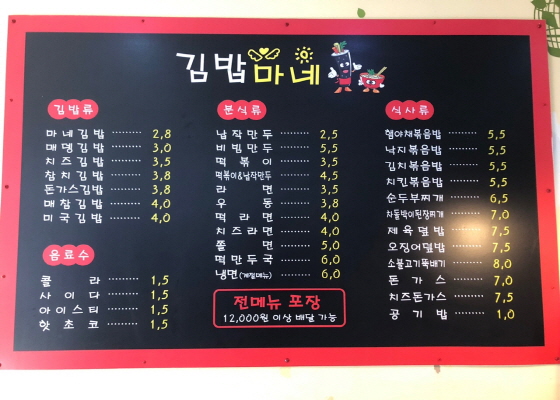 김밥마네
김밥류
마네김밥 ········· 2,8
매뎅김밥 ········· 3,0
치즈김밥 ········· 3,5
참치김밥 ········· 3,8
돈가스김밥 ········ 3,8
매참김밥 ········· 4,0
미국김밥 ········· 4,0
음료수
콜라 ········· 1,5
사이다 ········· 1,5
아이스티 ········· 1,5
핫초코 ········· 1,5
분식류
납작만두 ········· 2,5
비빔만두 ········· 5,5
떡볶이 ········· 3,5
떡볶이&납작만두 ········ 4,5
라면 ········· 3,5
우동 ········· 3,8
떡라면 ········· 4,0
치즈라면 ········· 4,0
쫄면 ········· 5,0
떡만두국 ········· 6,0
냉면(계절메뉴) ········ 6,0
전메뉴 포장
12,000원 이상 배달 가능
식사류
햄야채볶음밥 ········ 5,5
낙지볶음밥 ········· 5,5
김치볶음밥 ········· 5,5
치킨볶음밥 ········· 5,5
순두부찌개 ········· 6,5
차돌박이된장찌개 ······· 7,0
제육덮밥 ········· 7,5
오징어덮밥 ········· 7,5
소불고기뚝배기 ········ 8,0
돈가스 ········· 7,0
치즈돈가스 ········· 7,5
공기밥 ········· 1,0